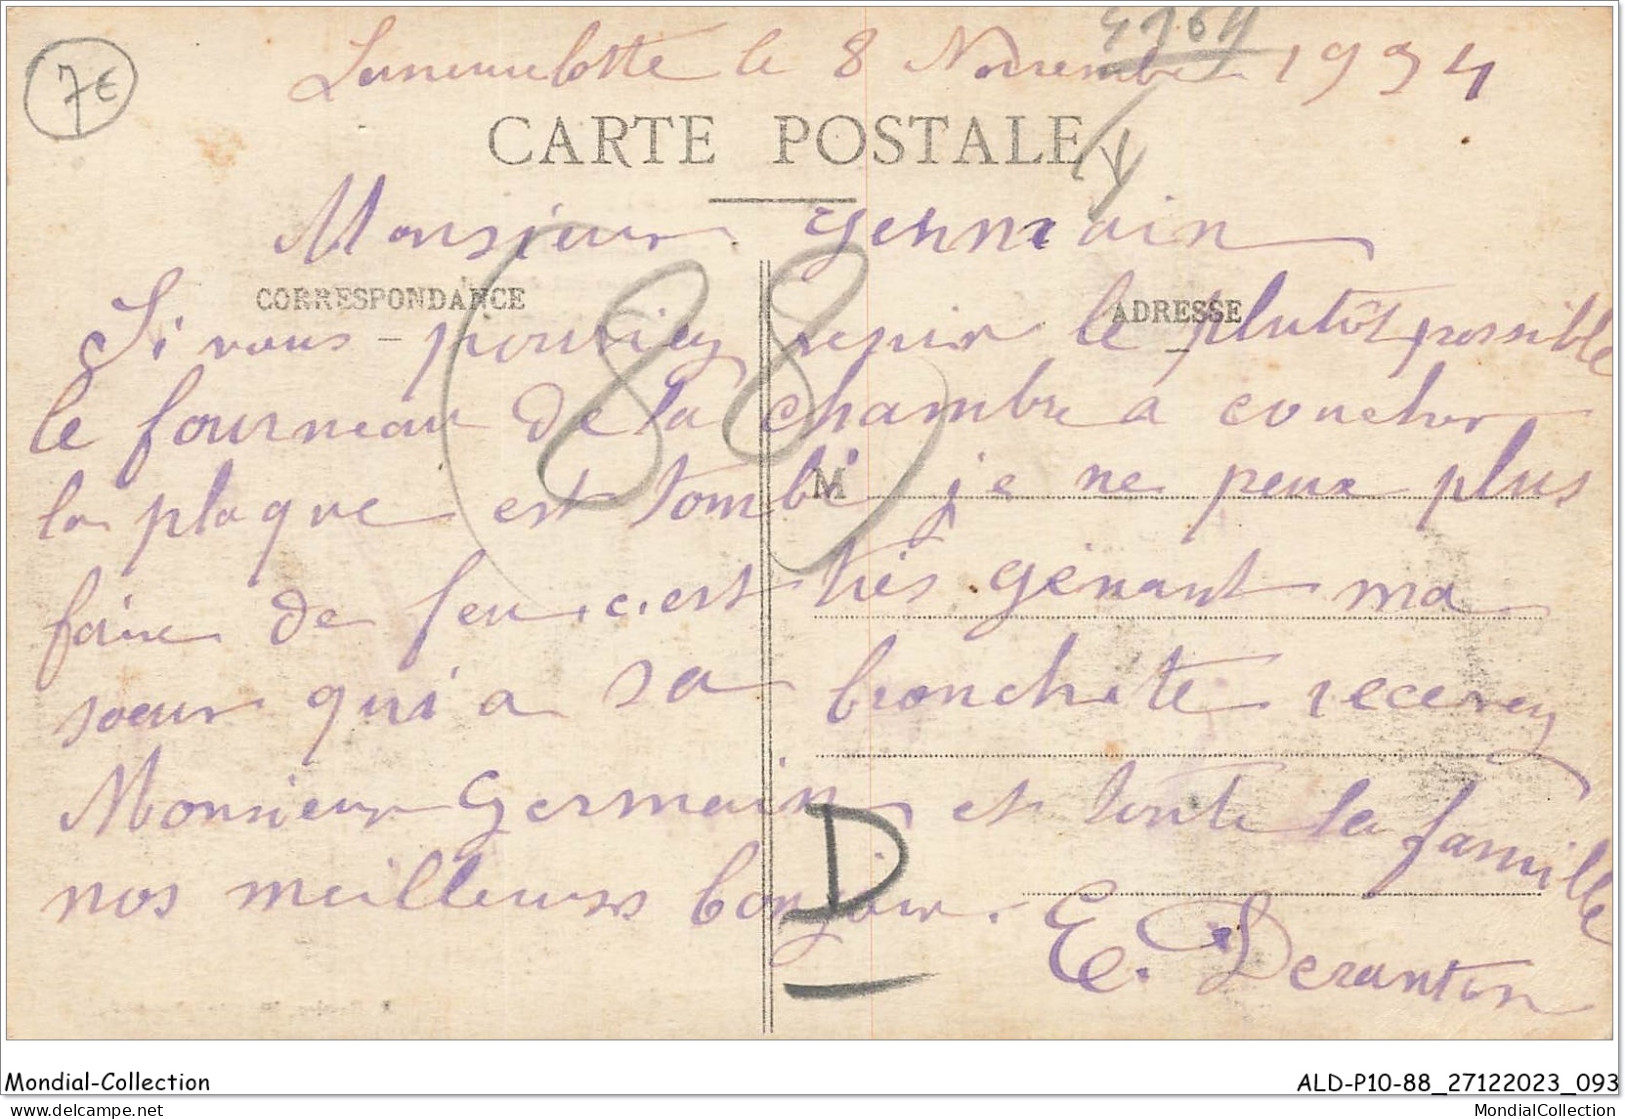 7€
4164
le 8 Novembre 1934
CARTE POSTALE
Monsieur Germain
CORRESPONDANCE
ADRESSE
Si vous pouviez venir le plutôt possible
le fourneau de la chambre a coucher
la plaque est tombé je ne peux plus
M
faire de feu c.est très gènant ma
soeur qui a sa bronchite recevez
Monsieur Germain et toute la famille
nos meilleurs bonjour.
E. Deranton
(88)
D
Mondial-Collection
ALD-P10-88_27122023_093
www.delcampe.net
MondialCollection